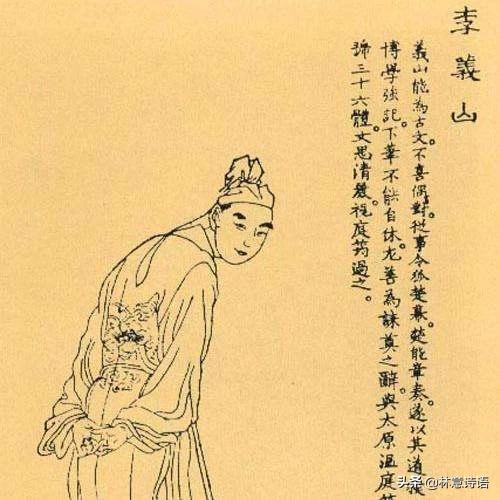 李義山
義山能為古文。不喜偶對。從事令狐楚幕。楚能章奏。遂以其道授
博學強記。下筆不能自休。尤善為誄奠之辭與太原溫庭筠
號三十六體。文思清麗。視庭筠過之。
头条 @林慧诗语